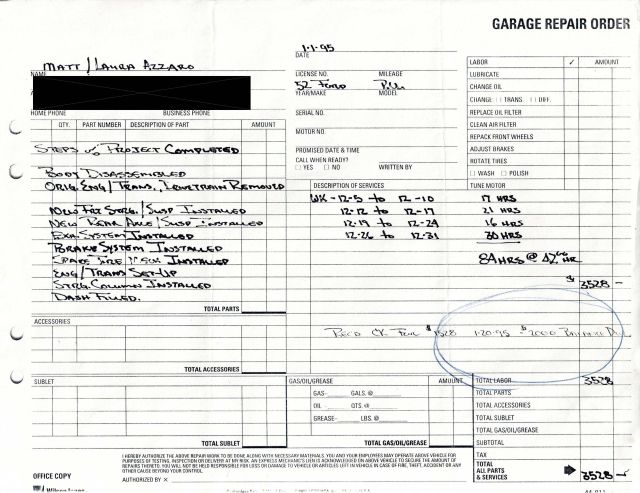 GARAGE REPAIR ORDER
MATT / LAURA AZZARO
NAME
HOME PHONE BUSINESS PHONE
1-1-95
DATE
LICENSE NO. MILEAGE
52 FORD P.U.
YEAR/MAKE MODEL
SERIAL NO.
MOTOR NO.
PROMISED DATE & TIME
CALL WHEN READY?
□ YES □ NO WRITTEN BY
LABOR ✓ AMOUNT
LUBRICATE
CHANGE OIL
CHANGE □ TRANS. □ DIFF.
REPLACE OIL FILTER
CLEAN AIR FILTER
REPACK FRONT WHEELS
ADJUST BRAKES
ROTATE TIRES
□ WASH □ POLISH
TUNE MOTOR
QTY. PART NUMBER DESCRIPTION OF PART AMOUNT
STEPS of PROJECT COMPLETED
BODY DISASSEMBLED
ORIG. ENG/TRANS, REMOVED
NEW FRT STRG./SUSP INSTALLED
NEW REAR AXLE/SUSP INSTALLED
EXH SYSTEM INSTALLED
BRAKE SYSTEM INSTALLED
SPARE TIRE INSTALLED
ENG/TRANS SET-UP
STRG. COLUMN INSTALLED
DASH FILLED.
TOTAL PARTS
DESCRIPTION OF SERVICES
WK - 12-5 to 12-10 17 HRS
12-12 to 12-17 21 HRS
12-19 to 12-24 16 HRS
12-26 to 12-31 30 HRS
84 HRS @ 42 HR
$ 3528 —
REC'D CK $1528 1-20-95 - $2000 BALANCE
ACCESSORIES
TOTAL ACCESSORIES
SUBLET
TOTAL SUBLET
GAS/OIL/GREASE AMOUNT
GAS- GALS. @
OIL - QTS. @
GREASE- LBS. @
TOTAL GAS/OIL/GREASE
TOTAL LABOR 3528 —
TOTAL PARTS
TOTAL ACCESSORIES
TOTAL SUBLET
TOTAL GAS/OIL/GREASE
SUBTOTAL
TAX
TOTAL ALL PARTS & SERVICES 3528 —
I HEREBY AUTHORIZE THE ABOVE REPAIR WORK TO BE DONE ALONG WITH NECESSARY MATERIALS. YOU AND YOUR EMPLOYEES MAY OPERATE ABOVE VEHICLE FOR
PURPOSES OF TESTING, INSPECTION OR DELIVERY AT MY RISK. AN EXPRESS MECHANIC'S LIEN IS ACKNOWLEDGED ON ABOVE VEHICLE TO SECURE THE AMOUNT OF
REPAIRS THERETO. YOU WILL NOT BE HELD RESPONSIBLE FOR LOSS OR DAMAGE TO VEHICLE OR ARTICLES LEFT IN VEHICLE IN CASE OF FIRE, THEFT, ACCIDENT OR ANY
OTHER CAUSE BEYOND YOUR CONTROL.
AUTHORIZED BY X
OFFICE COPY